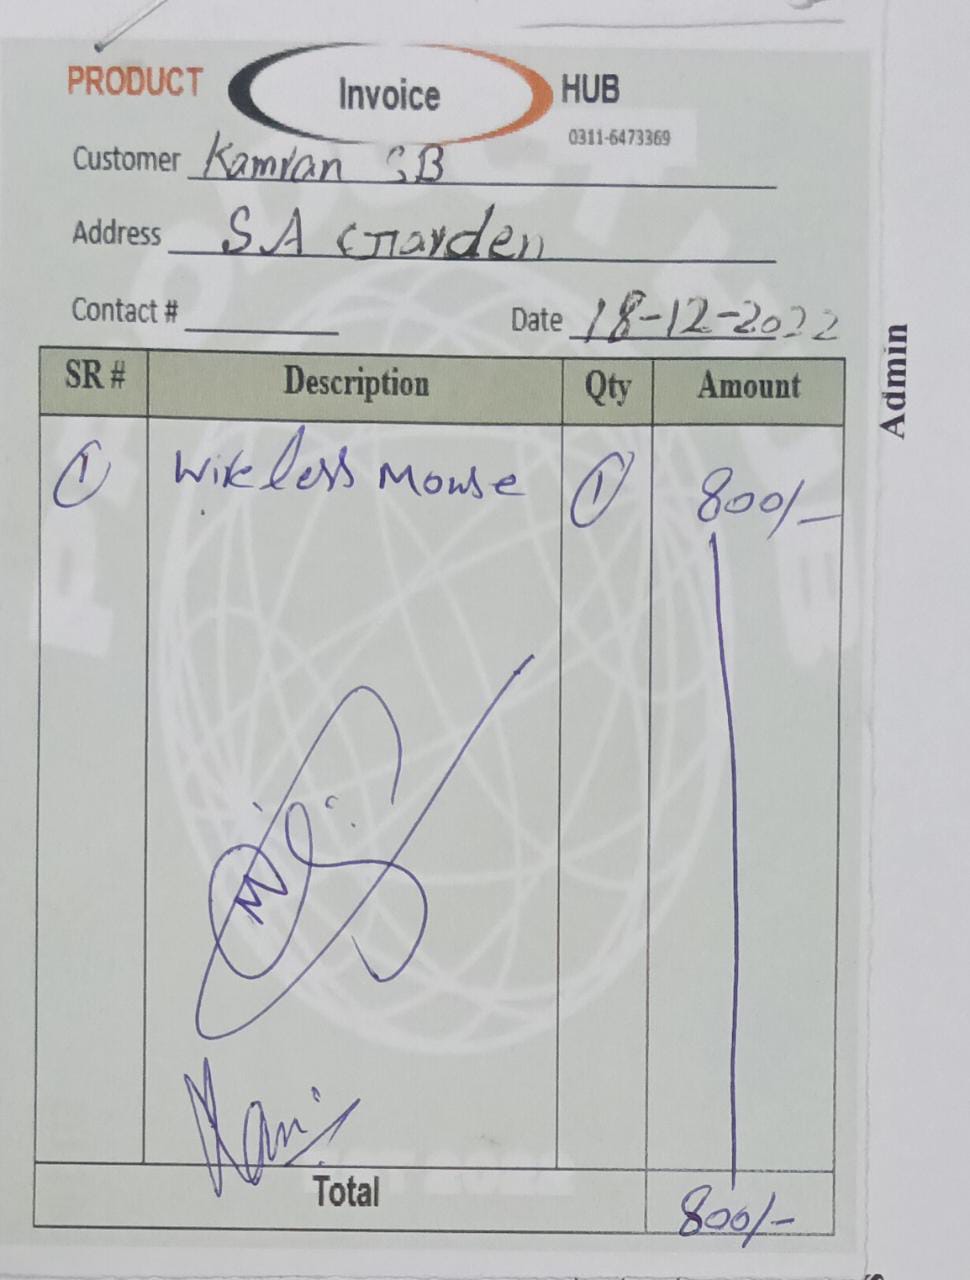 PRODUCT Invoice HUB
0311-6473369
Customer Kamran SB
Address SA Garden
Contact #
Date 18-12-2022
Admin
SR # Description Qty Amount
1 Wireless Mouse 1 800/-
Total 800/-